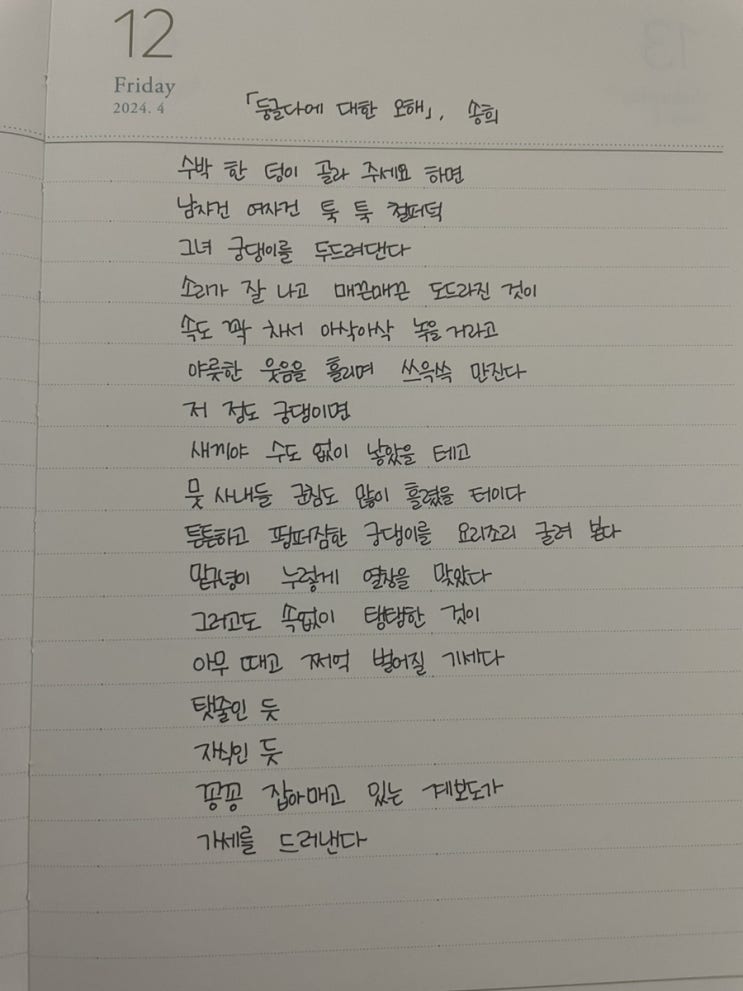 12
Friday
2024. 4
「둥글다에 대한 오해」, 송희
수박 한 덩이 골라 주세요 하면
남자건 여자건 툭 툭 철퍼덕
그녀 궁댕이를 두드려댄다
소리가 잘 나고 매끈매끈 도드라진 것이
속도 꽉 차서 아삭아삭 녹을거라고
야릇한 웃음을 흘리며 쓰윽쓱 만진다
저 정도 궁댕이면
새끼야 수도 없이 낳았을 테고
뭇 사내들 군침도 많이 흘렸을 터이다
튼튼하고 펑퍼짐한 궁댕이를 요리조리 굴려 본다
밑구녕이 누렇게 열창을 맞았다
그러고도 속없이 탱탱한 것이
아무 때고 쩌억 벌어질 기세다
탯줄인 듯
자식인 듯
꽁꽁 잡아매고 있는 계보도가
가세를 드러낸다